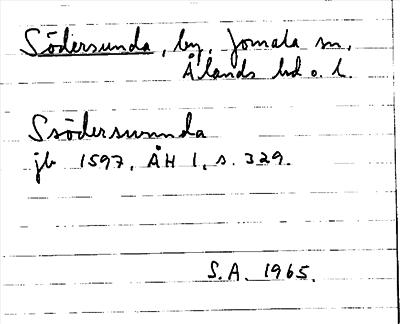 Södersunda, by, Jomala sn,
Ålands hd o. l.
Ssödersunnda
jb 1597, ÅH 1, s. 329.
S.A. 1965.